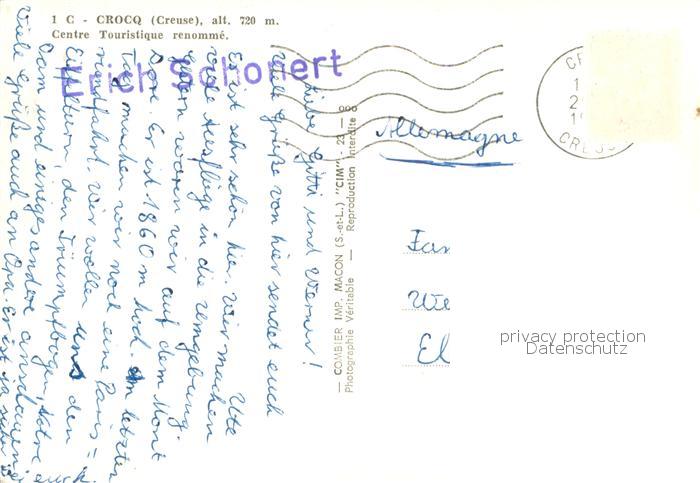 1 C - CROCQ (Creuse), alt. 720 m.
Centre Touristique renommé.
Erich Schonert
Liebe Gitti und Werner!
Viele Grüße von hier sendet euch
Ute
Es ist sehr schön hier. Wir machen
viele Ausflüge in die Umgebung.
Gestern waren wir auf dem Mont
Dore. Er ist 1860 m hoch. Am letzten
Tag machen wir noch eine Paris=
rundfahrt. Wir wollen uns den
Eiffelturm, den Triumpfbogen, Notre
Dam und einiges andere anschauen.
Viele Grüße auch an Opa. Er ist ja
— COMBIER IMP. MACON (S.-et-L.) "CIM" 23 —
Photographie Véritable — Reproduction Interdite
Allemagne
Fan
Wie
El
CREUSE
privacy protection
Datenschutz